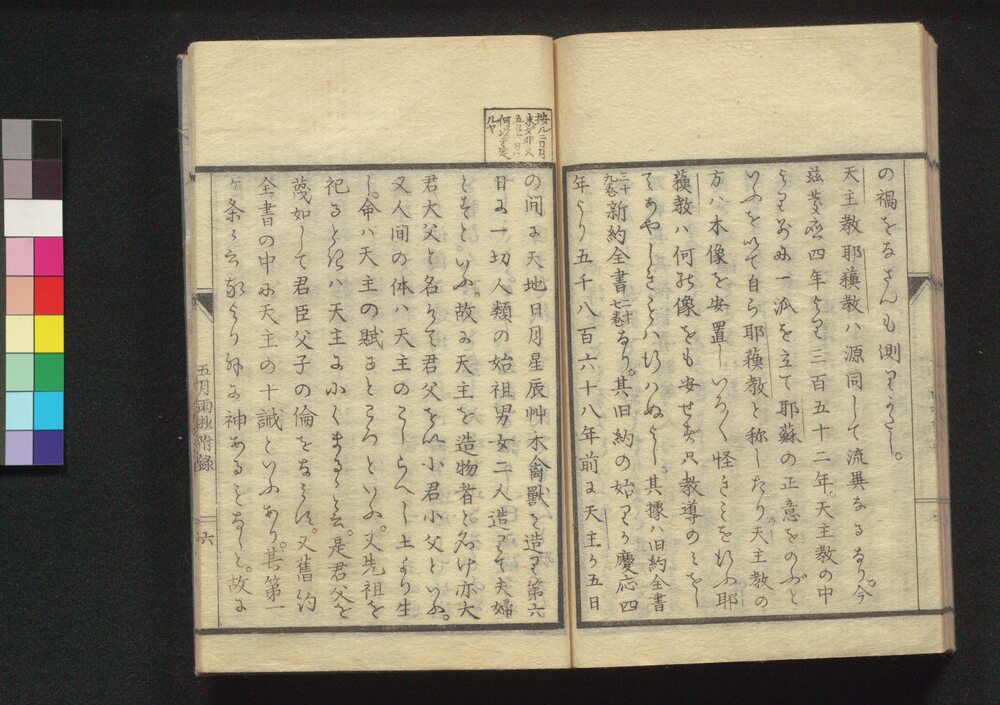 の禍をなさんも測りかたし。
天主教耶穌教ハ源同して流異なるなり。今
茲慶應四年より三百五十二年天主教の中
より別に一派を立て耶蘇の正意をのぶと
いふを以て自ら耶穌教と称したり天主教の
方ハ木像を安置しいろ〱怪きことを行ふ耶
穌教ハ何の像をも安せず只教導のミをし
てあやしきことハ行ハぬよし。其據ハ旧約全書
三十九巻新約全書二十七巻なり。其旧約の始りが慶応四
年より五千八百六十八年前に天主が五日
の間に天地日月星辰艸木禽獣を造り第六
日に一切人類の始祖男女二人造りて夫婦
とすといふ。故に天主を造物者と名け亦大
君大父と名つけて君父をハ小君小父といふ。
又人間の体ハ天主のこしらへし土より生
し。命ハ天主の賦るところといふ。又先祖を
祀るときハ天主ににくまるゝと云。是君父を
蔑如して君臣父子の倫をなミす。又舊約
全書の中に天主の十誡といふあり。其第一
ケ条に云我より外に神あることなしと。故に
五月雨抄附錄
六